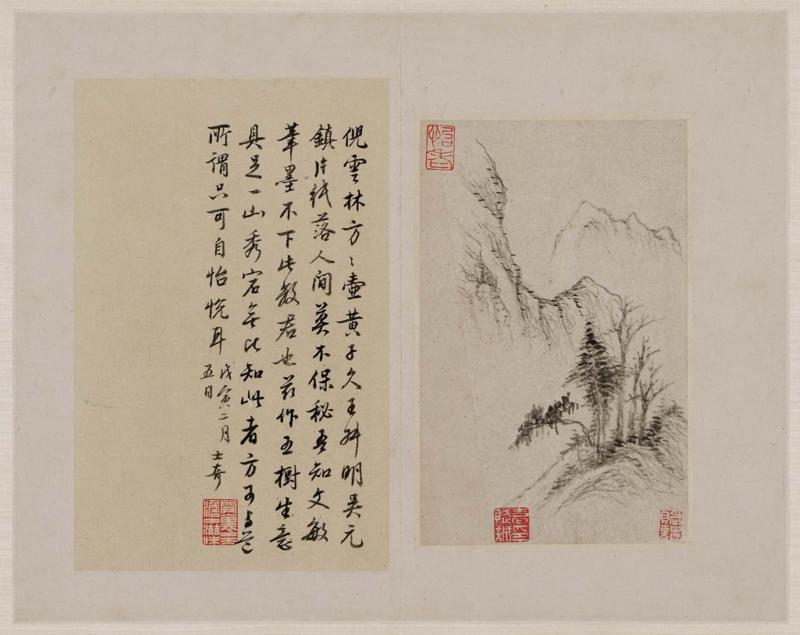 倪雲林方〻壺黃子久王叔明吳元
鎮片紙落人間莫不保秘吾知文敏
筆墨不下此數君也茲作五樹生意
具足一山秀宕無比知此者方可与道
所謂只可自怡悅耳
戊寅二月
五日
士奇